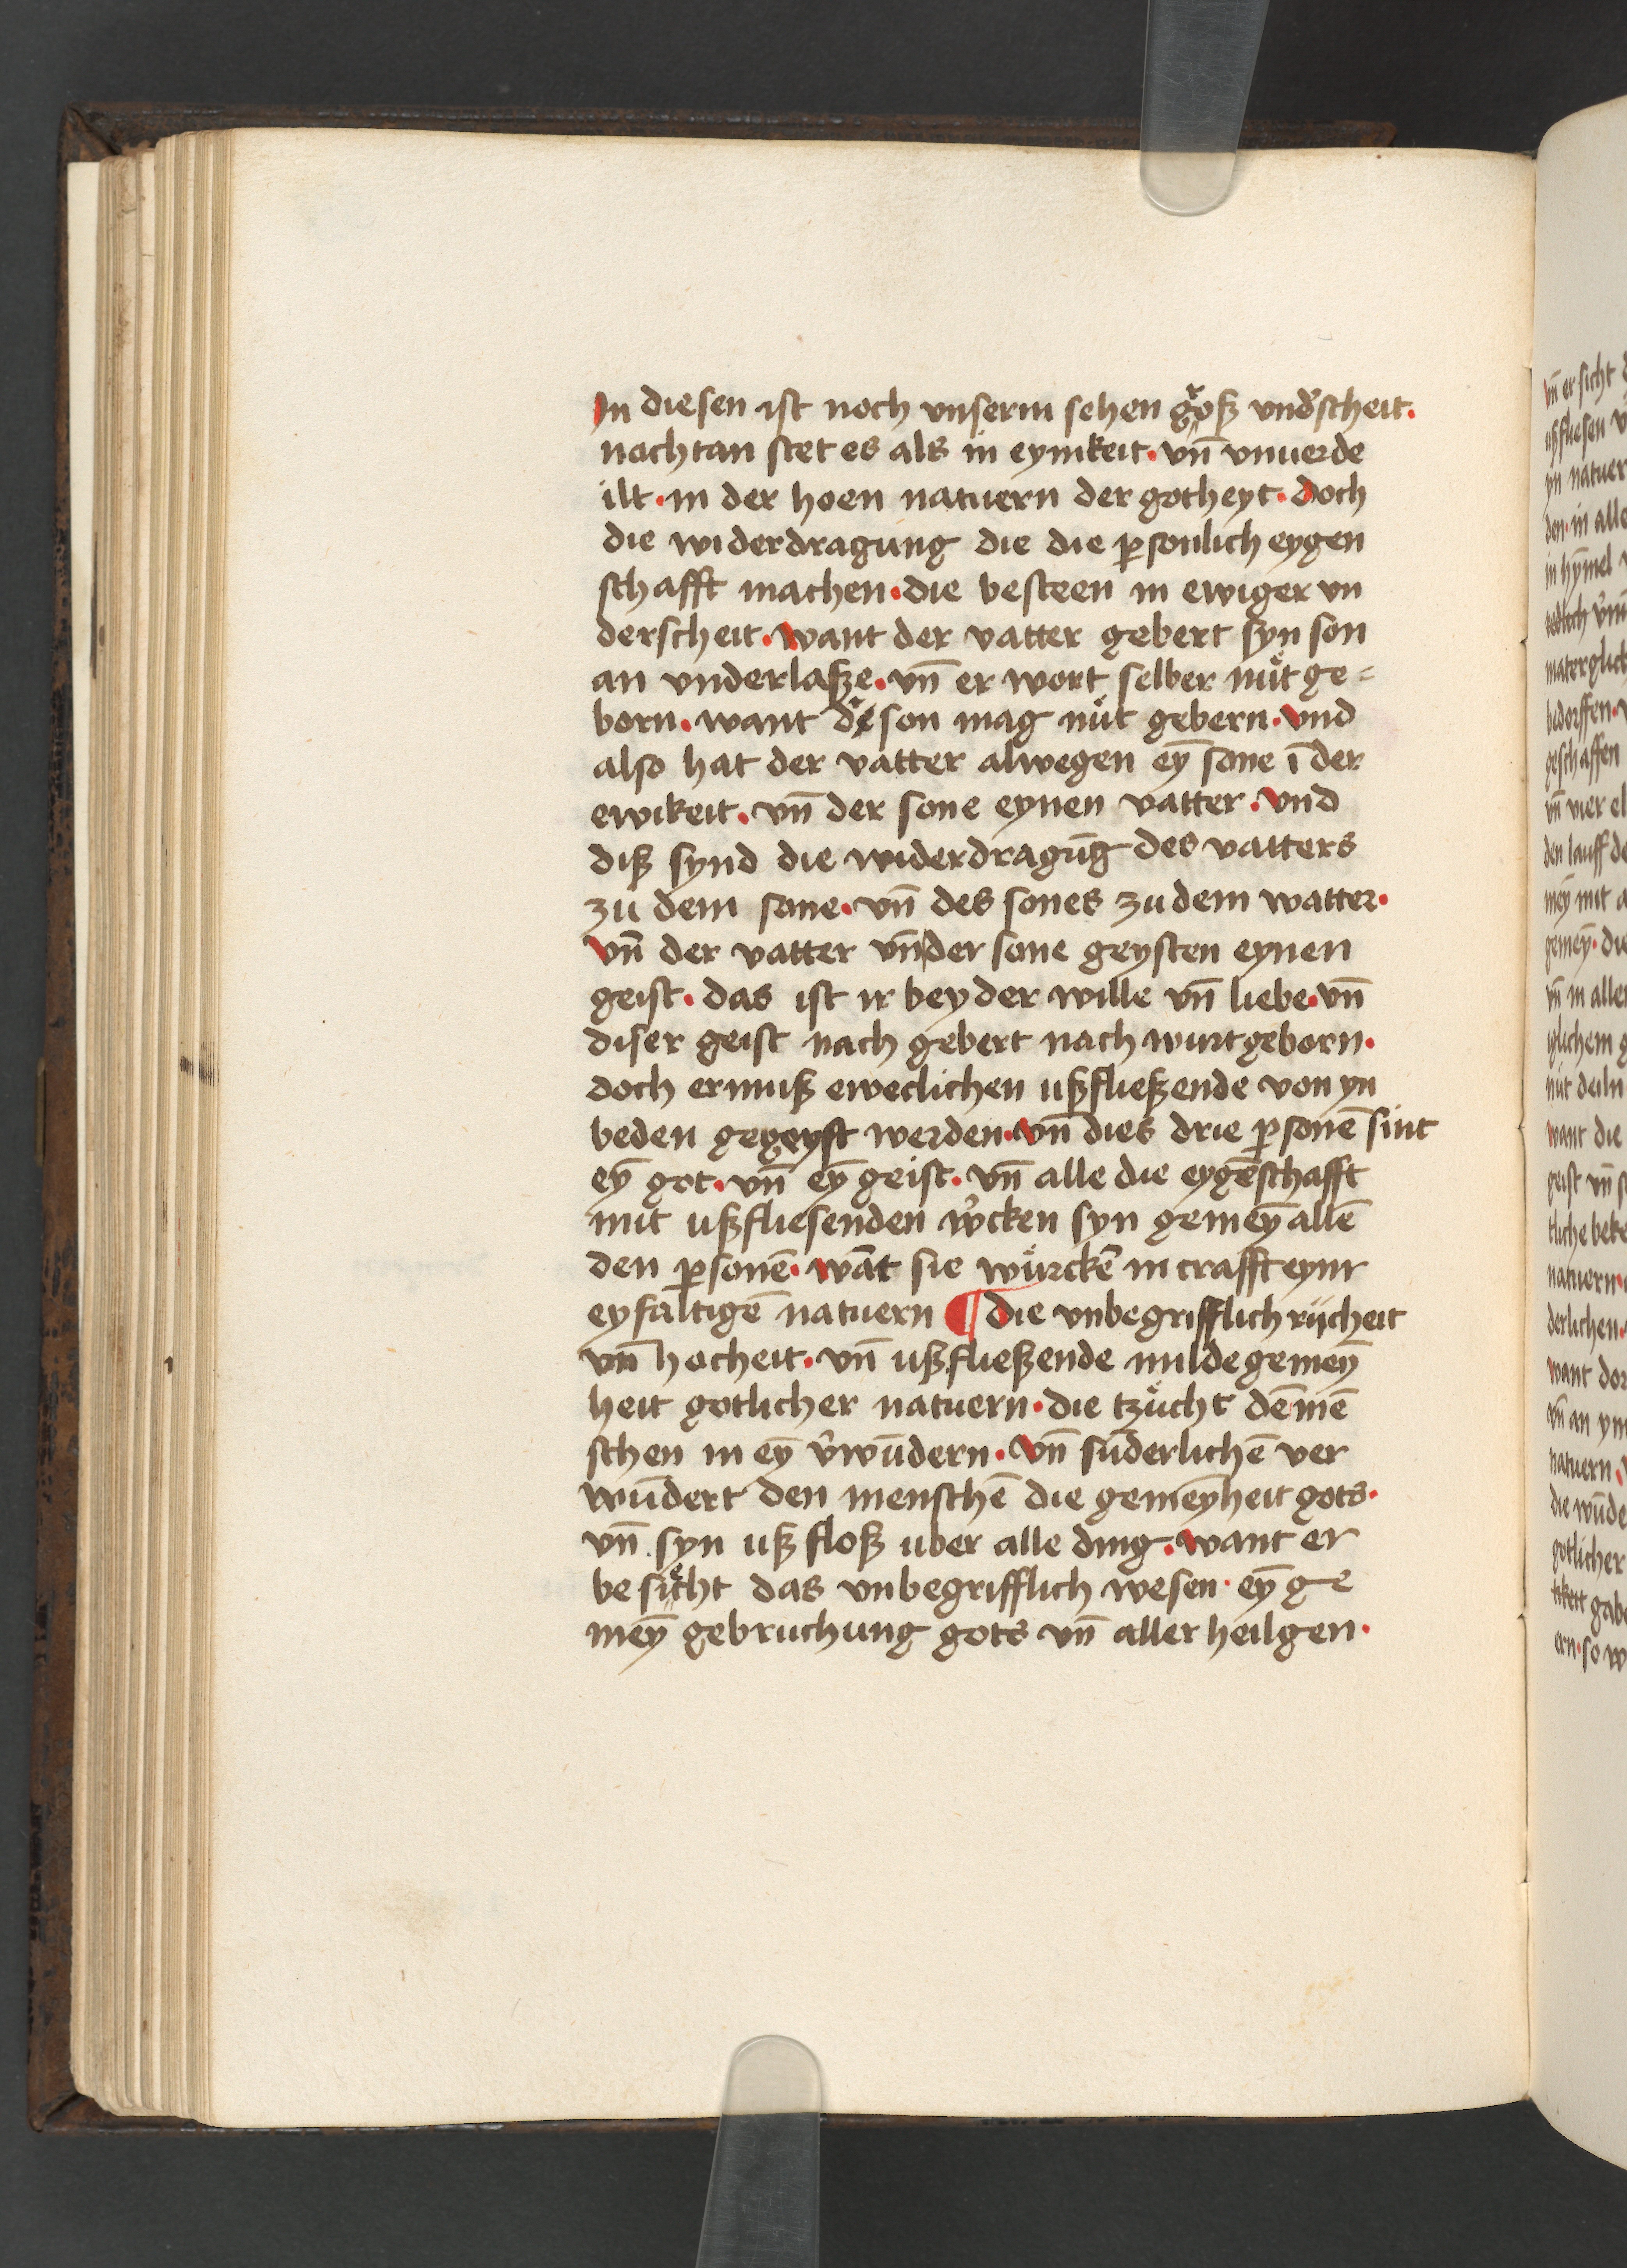 In diesen ist noch vnserm sehen groß vnd᷑scheit.
nochtan stet es als in eynikeit. vn̄ vnuerde
ilt. in der hoen natuern der gotheyt. doch
die widerdragung die die ꝑsonlich eygen
schafft machen. die besteen in ewiger vn
derscheit. want der vatter gebert syn son
an vnderlaße. vn̄ er wort selber nuͤt ge=
born. want der son mag nuͤt gebern. vnd
also hat der vatter alwegen eȳ sone ī der
ewikeit. vn̄ der sone eynen vatter. vnd
diß synd die widerdragūg des vatters
zu dem sone. vn̄ des sones zu dem watter.
vn̄ der vatter vn̄ der sone geysten eynen
geist. das ist ir beyder wille vn̄ liebe. vn̄
diser geist nach gebert nach wurt geborn.
doch er muß eweclichen ußfließende von yn
beden gegeyst werden. vn̄ dies drie ꝑsonē sint
eȳ got. vn̄ eȳ geist. vn̄ alle die eygēschafft
mit ußfliesenden w᷑cken syn gemeȳ allē
den ꝑsonē. wāt sie wuͤrckē in crafft eynr
eyfaltigē natuern ¶ die vnbegrifflich rijcheit
vn̄ hocheit. vn̄ ußfließende milde gemeȳ
heit gotlicher natuern. die tzuͤcht dē mē
schen in eȳ v᷑wūdern. vn̄ sūderlichē ver
wūdert den menschē die gemeyheit gots.
vn̄ syn ußfloß uber alle ding. want er
besicht das vnbegrifflich wesen. eȳ ge
meȳ gebruchung gots vn̄ aller heilgen.